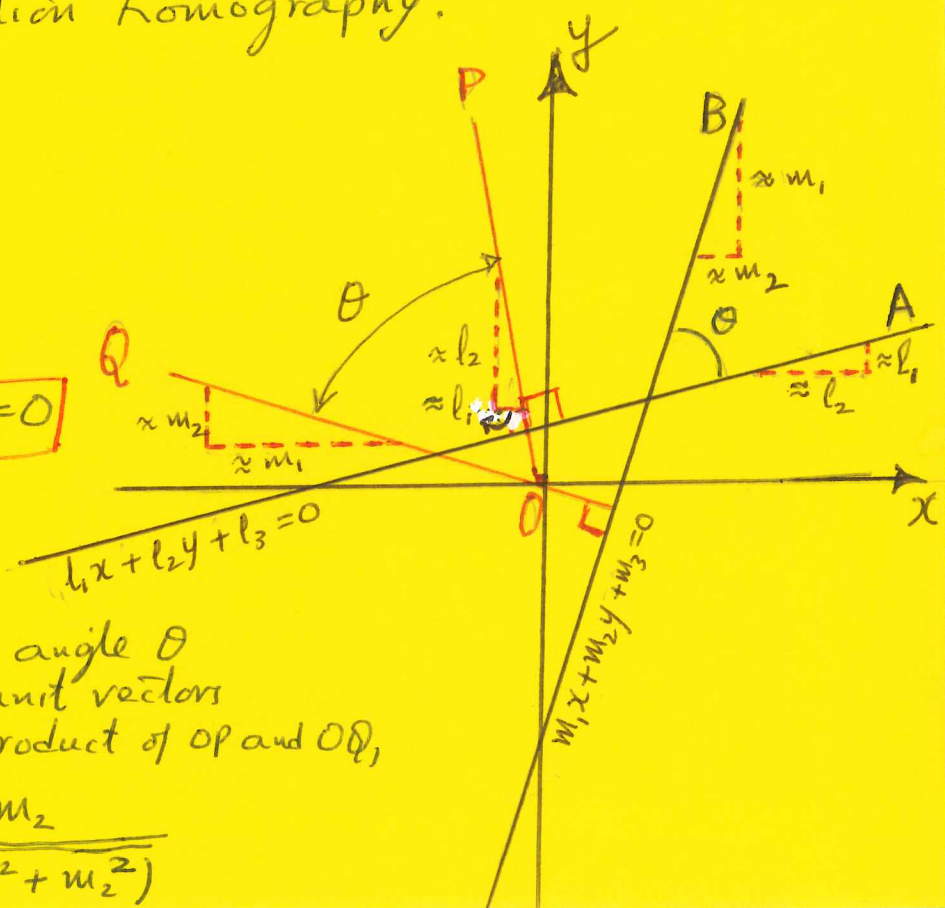 tion homography.
y
P
B
≈ m₁
≈ m₂
θ
θ
A
≈ l₁
≈ l₂
Q
≈ l₂
≈ l₁
=0
≈ m₂
≈ m₁
O
x
l₁x+l₂y+l₃=0
m₁x+m₂y+m₃=0
angle θ
unit vectors
product of OP and OQ,
m₂
² + m₂²)